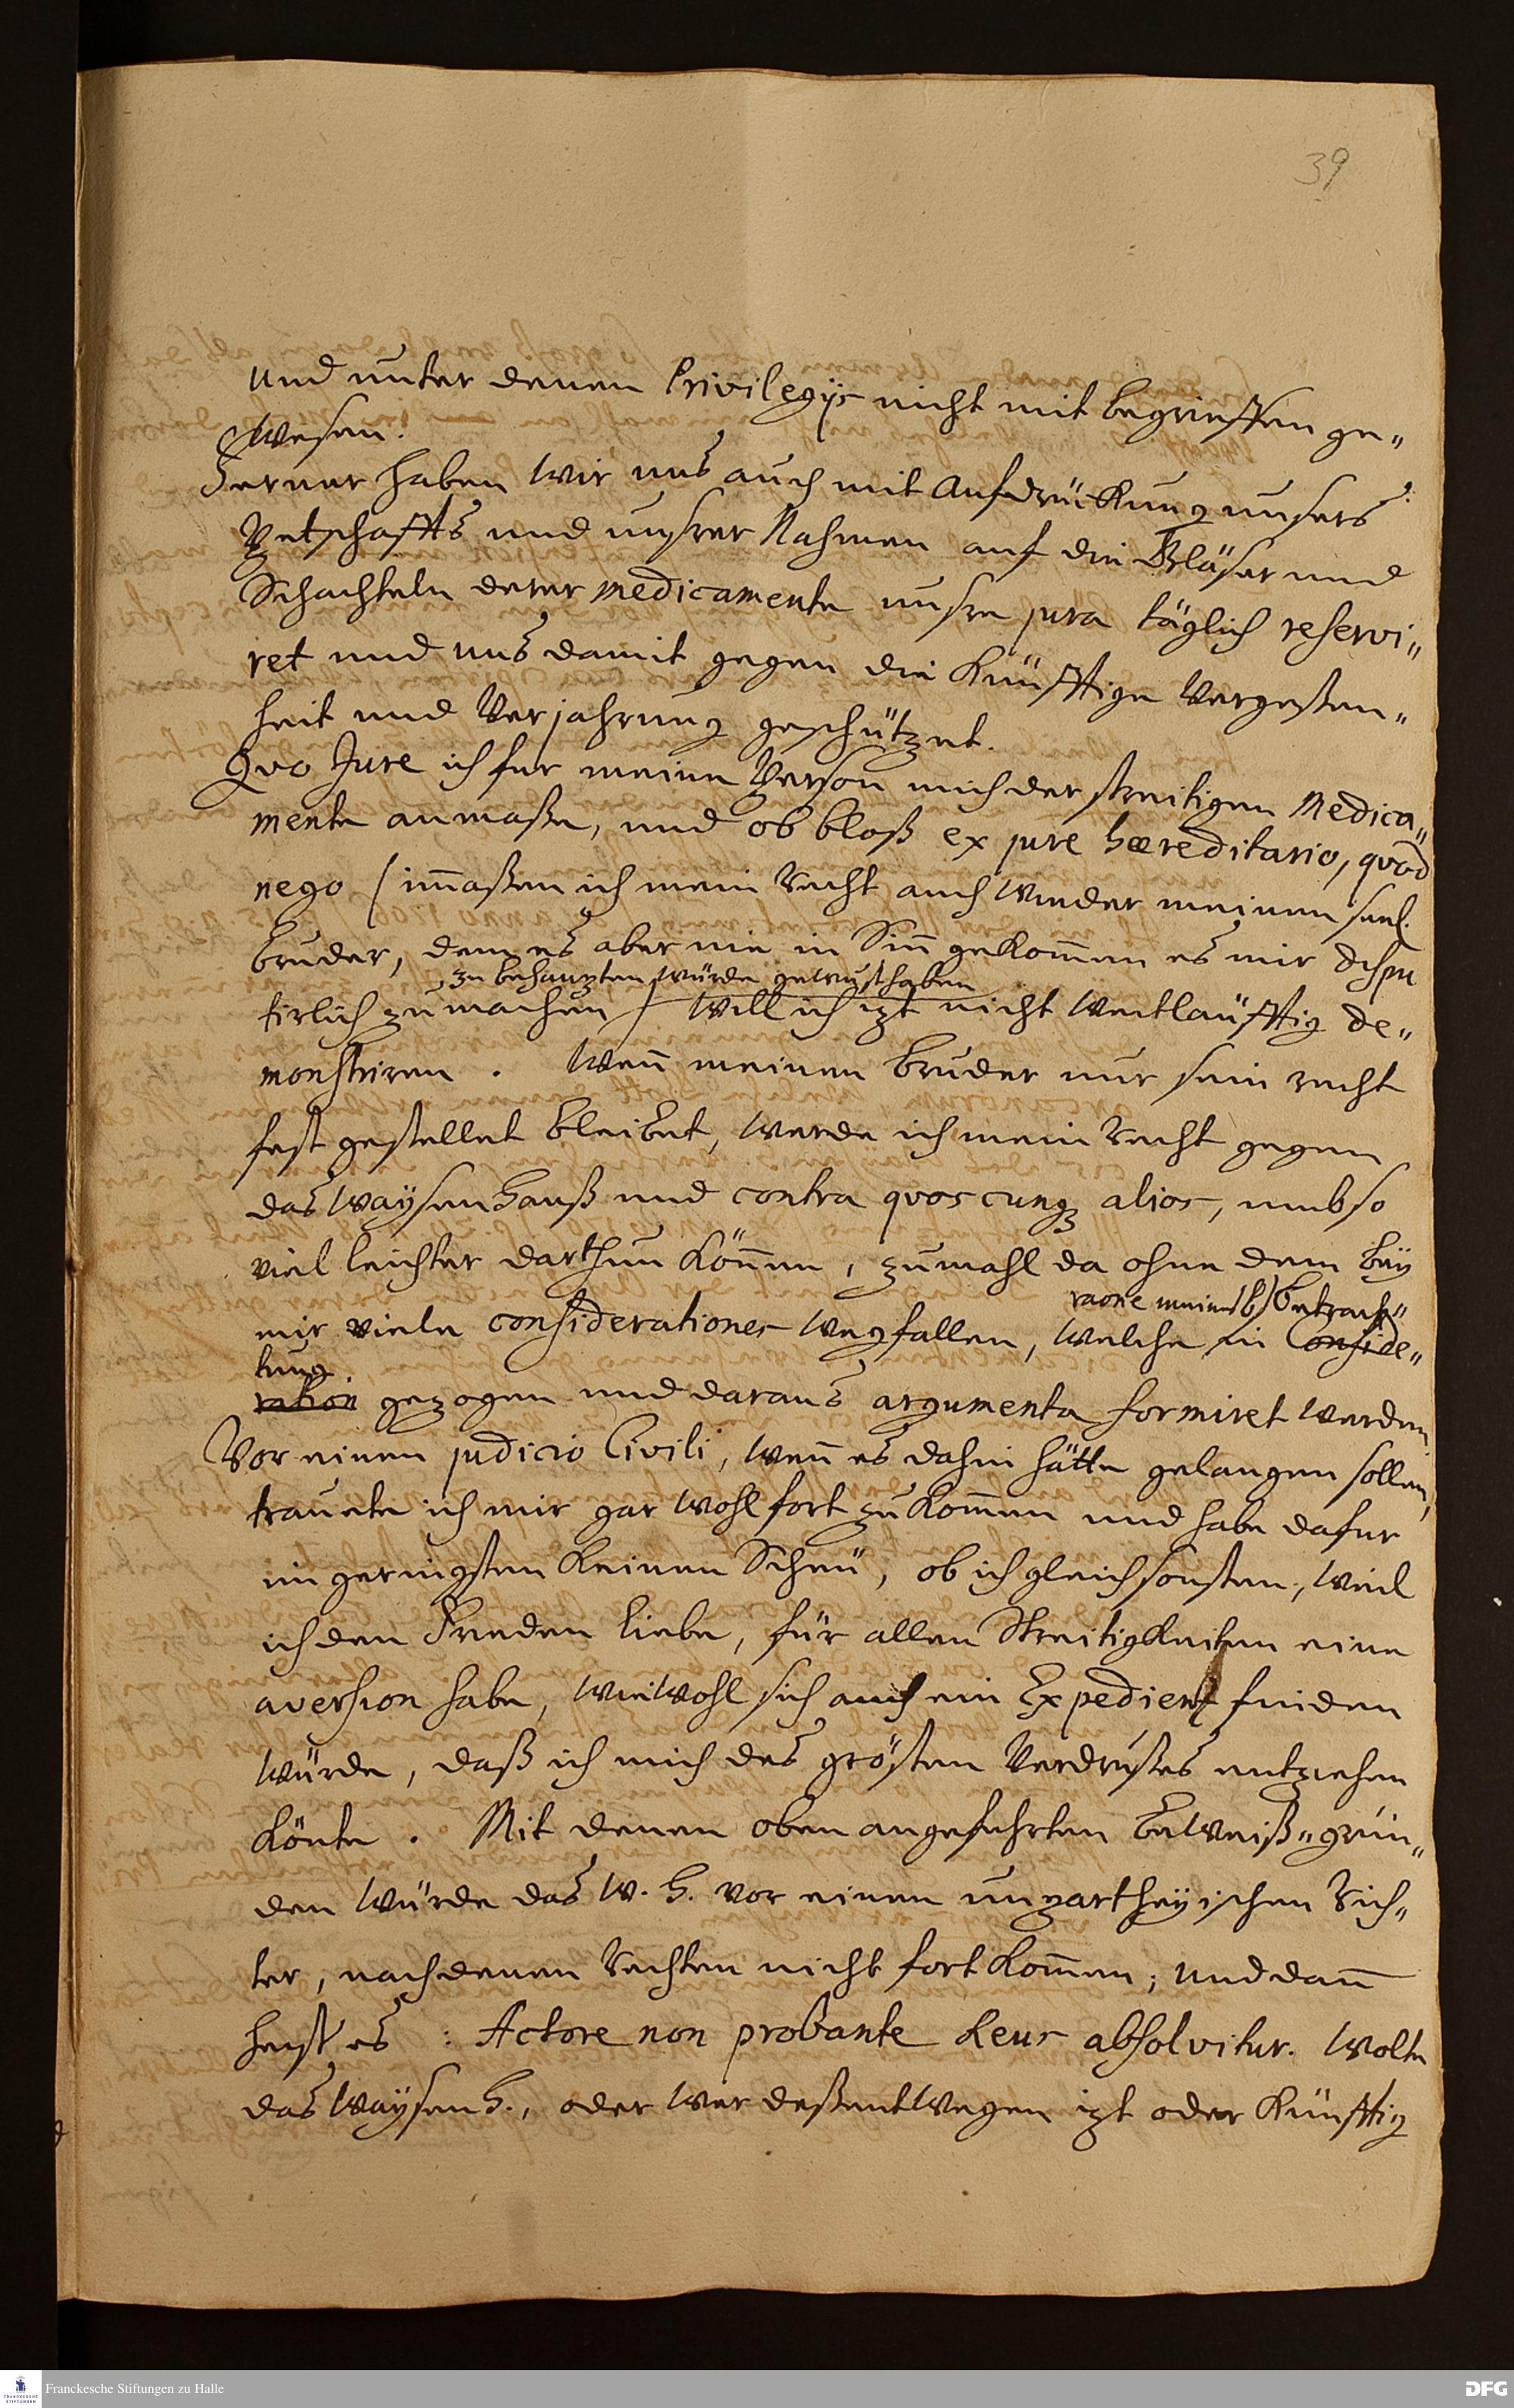 39
und unter denen Privilegijs nicht mit begrieffen ge„
wesen.
Ferner haben wir uns auch mit Aufdrückung unsers
Petschaffts und unsrer Nahmen auf die Gläser und
Schachteln derer Medicamente unsre jura täglich reservi„
ret und uns damit gegen die künfftige Vergeßen„
heit und Verjahrung geschützet.
Quo Jure ich fur meine Person mich der streitigen Medica„
mente anmaße, und ob bloß ex jure haereditario, quod
nego /immaßen ich mein Recht auch wieder meinen seel.
Bruder, dem es aber nie in Sinn gekommen es mir dispu
zu behaupten würde gewust haben
tirlich zu machen / will ich izt nicht weitläufftig de„
monstriren. Wenn meinem Bruder nur sein recht
fest gestellet bleibet, werde ich mein Recht gegen
das Waysenhauß und contra quoscunq alios, umb so
viel leichter darthun können, zumahl da ohne dem bey
raone meines Betrach„
mir viele considerationes wegfallen, welche in Conside„
tung
ration gezogen und daraus argumenta formiret werden
Vor einem judicio Civili, wenn es dahin hätte gelangen sollen,
trauete ich mir gar wohl fort zu kommen und habe dafur
im geringsten keinen Scheu, ob ich gleich sonsten, weil
ich den Frieden liebe, für allen Streitigkeiten eine
aversion habe, wiewohl sich auch ein Expedient finden
würde, daß ich mich des grösten Verdrußes entziehen
könte. Mit denen oben angefuhrten Beweiß„grün„
den würde das W. H. vor einem unpartheyischen Rich„
ter, nach denen Rechten nicht fort kommen; und dann
heist es: Actore non probante Reus absolvitur. Wolte
das Waysenh., oder wer deßentwegen izt oder künfftig
Franckesche Stiftungen zu Halle
DFG